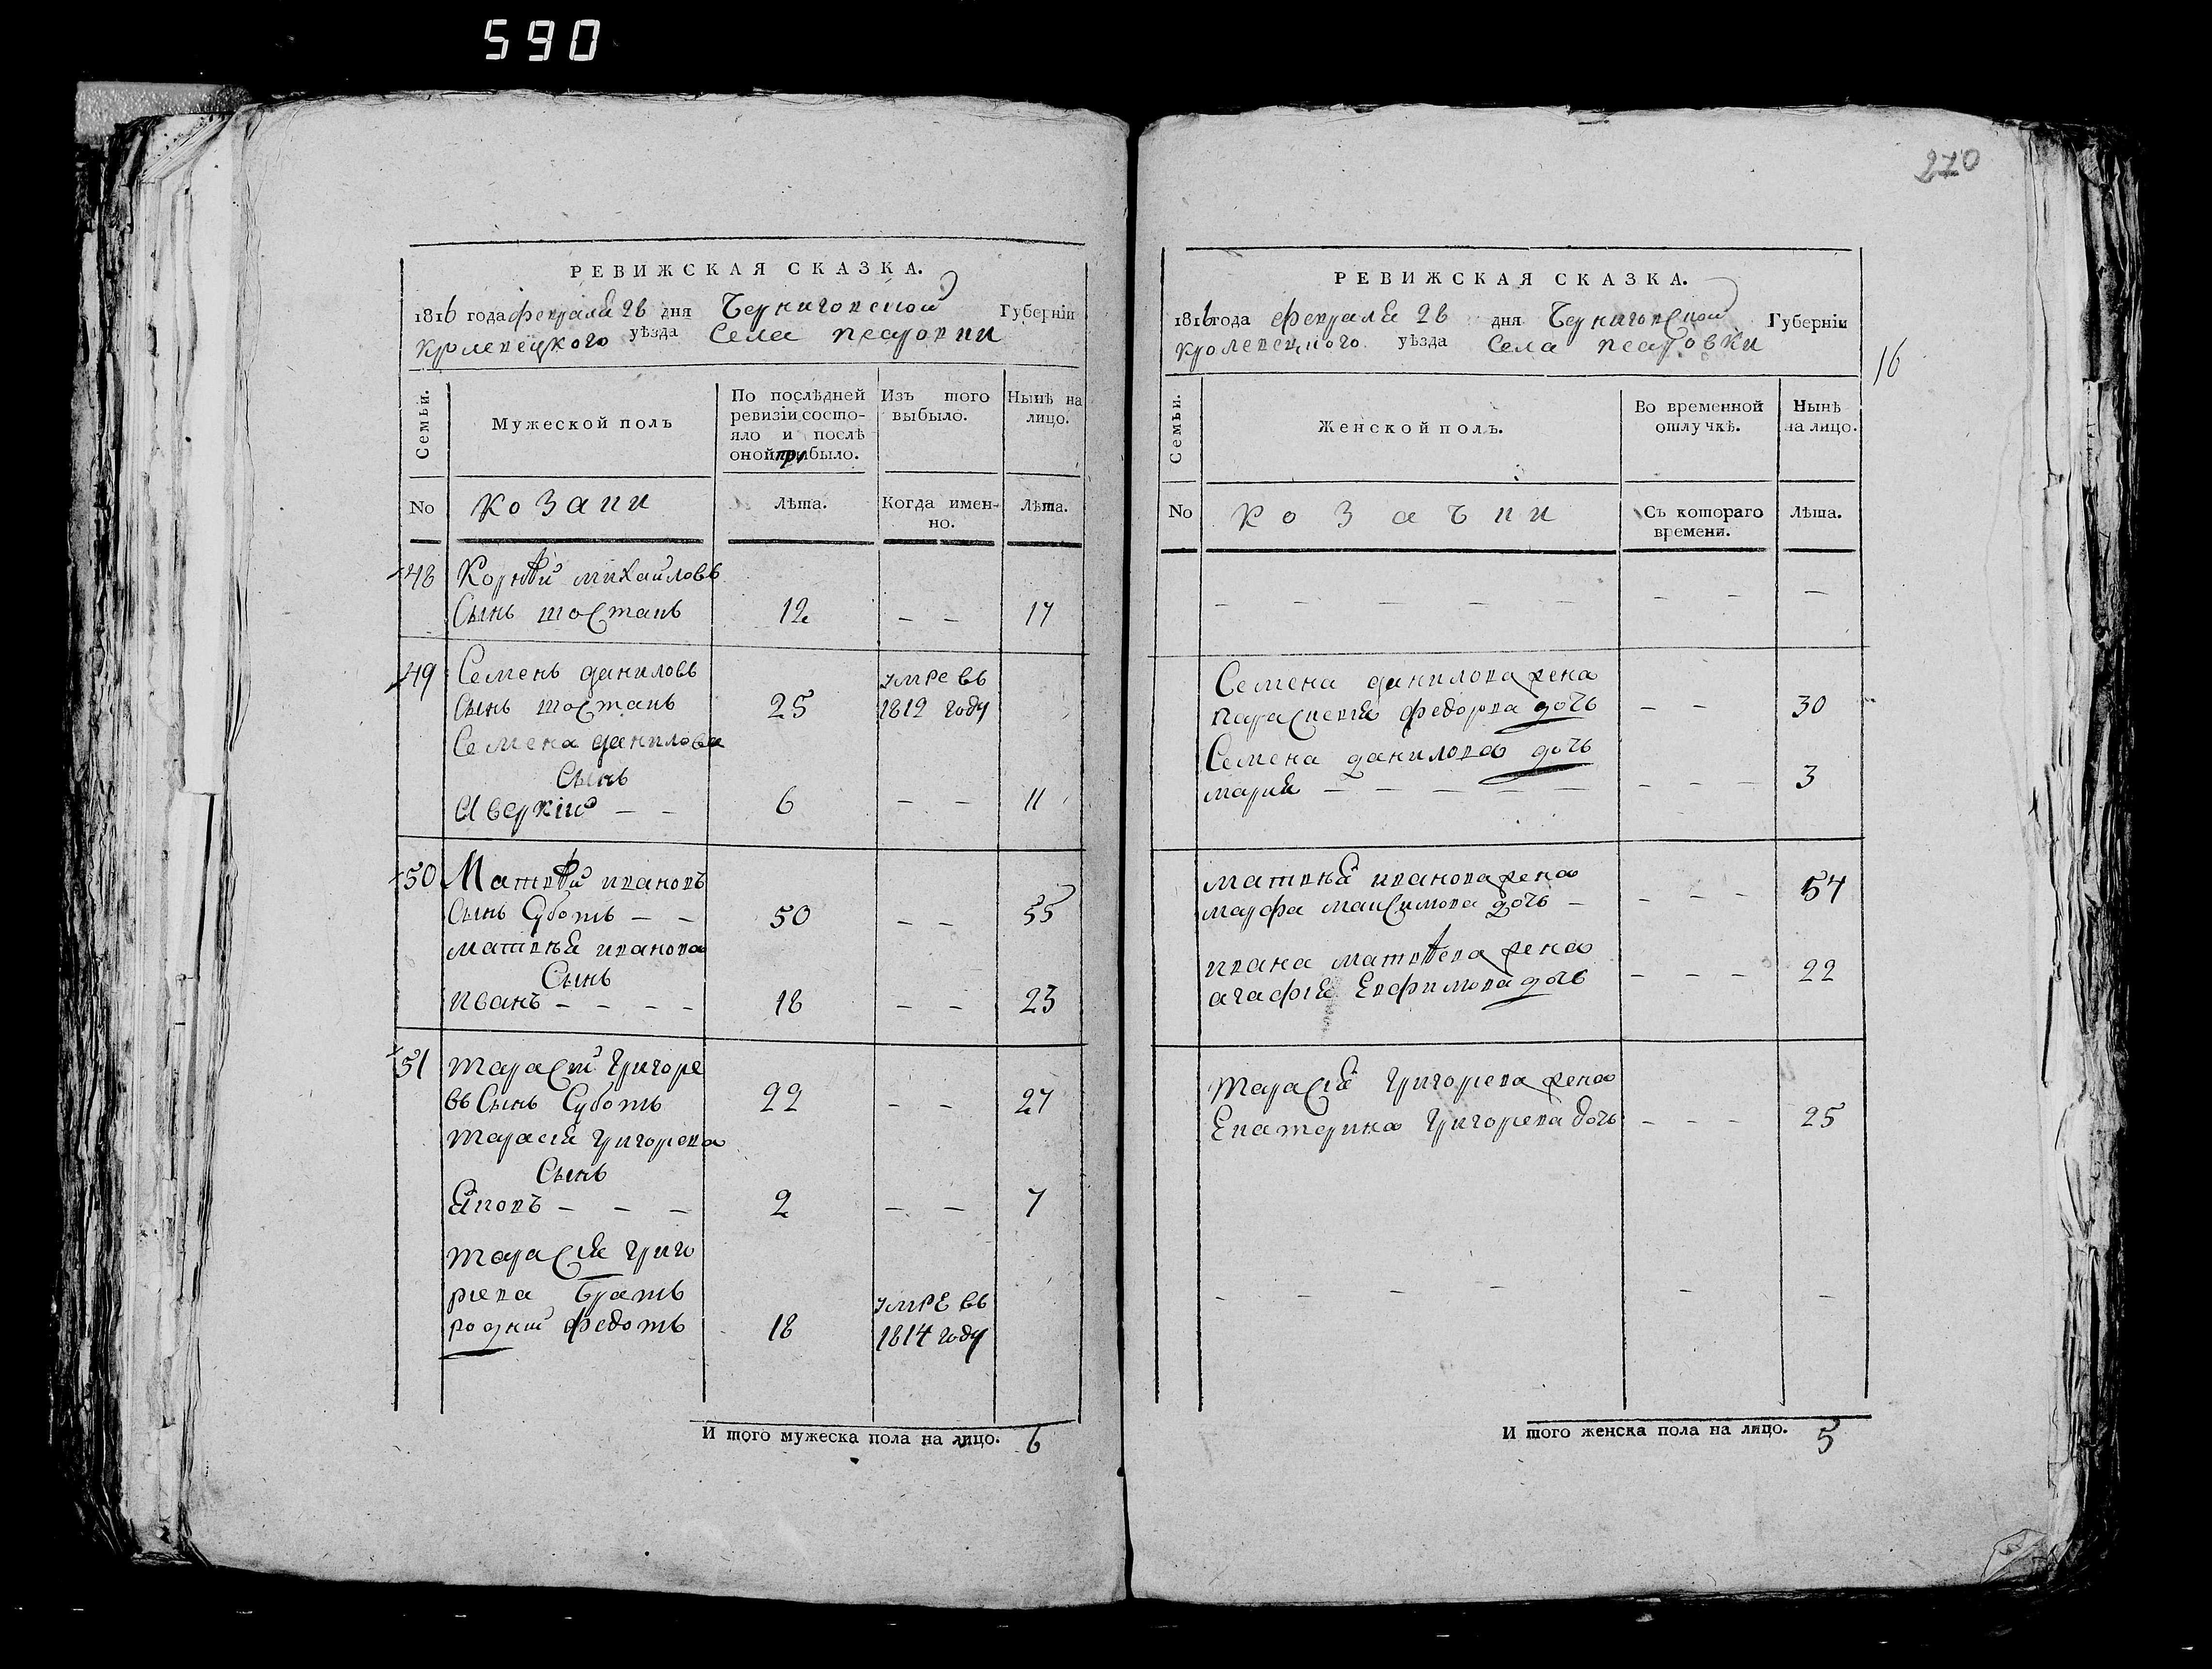 590
270
РЕВИЖСКАЯ СКАЗКА.
1816 года февраля 28 дня Черниговской Губерніи
кролевецкого уѣзда Села псаровки
Семьи.
Мужеской полъ
По послѣдней ревизіи состояло и послѣ оной прибыло.
Изъ того выбыло.
Нынѣ на лицо.
No
козаки
Лѣта.
Когда именно.
Лѣта.
48 Корнѣй михайловъ
Сынъ шостакъ 12 – – 17
49 Семенъ даниловъ
Сынъ шостакъ 25 умре въ 1812 году
Семена данилова
Сынъ
Аверкій – – 6 – – 11
50 Матвѣй ивановъ
Сынъ Суботъ – – 50 – – 55
матвѣя иванова
Сынъ
иванъ – – – – 18 – – 23
51 тарасій григоре
въ Сынъ Суботъ 22 – – 27
тарасія григорева
Сынъ
Яковъ – – – 2 – – 7
тарасія григо
риева братъ
родний федотъ 18 умре въ 1814 году
И того мужеска пола на лицо. 6
РЕВИЖСКАЯ СКАЗКА.
1816 года февраля 28 дня Черниговской Губерніи
кролевецкого уѣзда Села псаровки
16
Семьи.
Женской полъ.
Во временной отлучкѣ.
Нынѣ на лицо.
No
козачки
Съ котораго времени.
Лѣта.
– – – – – – – –
Семена данилова жена
параскевія федорова дочь – – 30
Семена данилова дочь
марія – – – – – – – – 3
матвѣя иванова жена
марфа максимова дочь – – – – 54
ивана матвѣева жена
агафія Евфимова дочь – – – 22
тарасія григорева жена
Екатерина григорева дочь – – – 25
– – – – – –
И того женска пола на лицо. 5